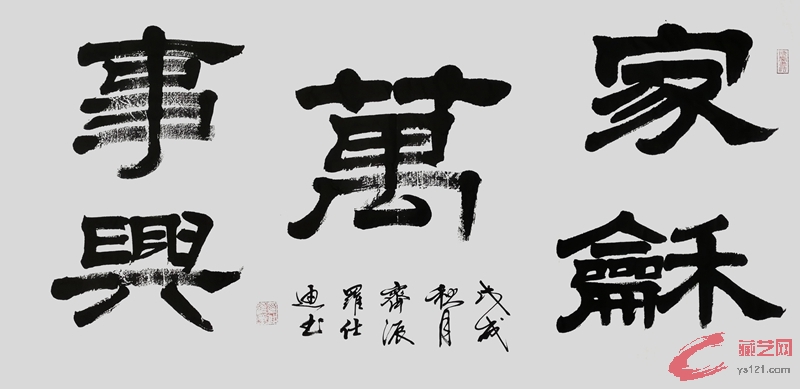 家龢
萬
事興
戊戌
秋月
齊派
羅仕
迪书
藏艺网
ys121.com